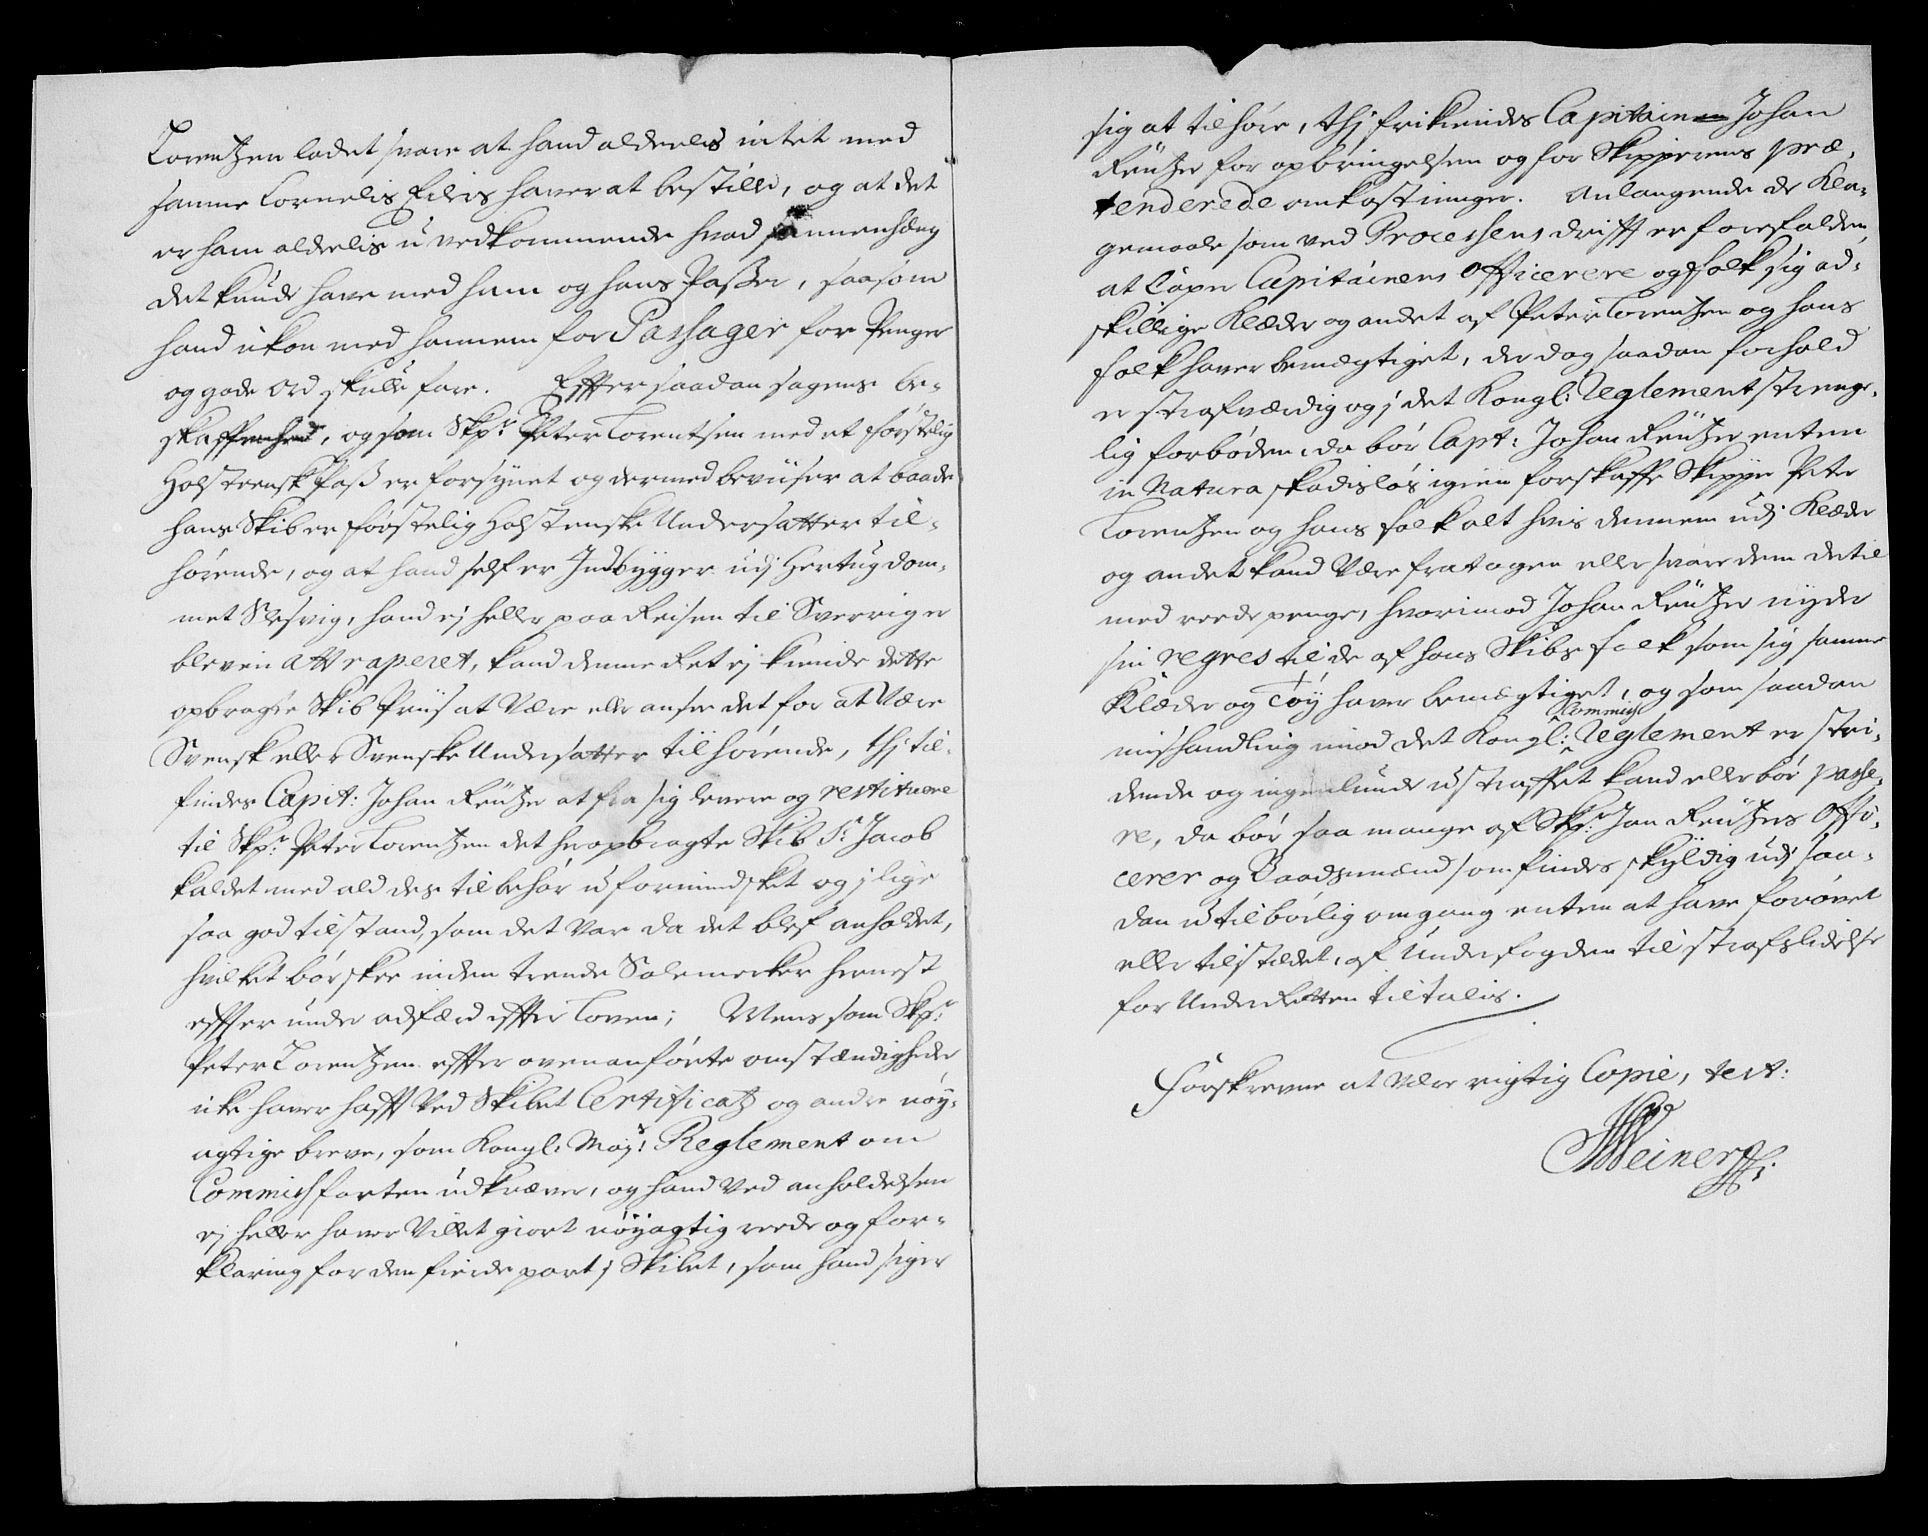 Lorentzen ladet svare at hand alderlis intet med
samme Cornelis Eilers haver at bestille, og at det
er ham alderlis uvedkommende hvad sammenhæng
det kunde have med ham og hans Passer, saasom
hand ikon med hannem for Passager for Penger
og gode ord skulle fare. Effter saadan sagens be-
skaffenhed, og som Skpr Peter Lorentsen med et førstelig
Holsteensk Pass er forsynet og dermed beviiser at baade
hans Skib er førstelig Holstenske Undersatter til-
hørende, og at hand self er Indbygger udj Hertugdom-
met Slesvig, hand ej heller paa Reisen til Sverrig er
bleven attraperet, kand denne Ret ej kiende dette
opbragte Skib Priis at Være eller ansee det for at Være
Svensk eller Svenske Undersatter tilhørende, thj til-
findes Capit: Johan Reutzer at fra sig levere og restituere
til Skpr Peter Lorentzen det heropbragte Skib St Jacob
kaldet med ald des tilbehør uformindsket og j lige
saa god tilstand, som det var da det blef anholdet,
hvilket bør skee inden trende Solemercker hernest
effter under adfærd effter Loven; Mens som Skpr
Peter Lorentzen effter ovenanførte omstændigheder
icke haver hafft Ved Skibet Certificatz og andre nøy-
agtige breve, som Kongl. Mayts Reglement om
Commissfarten udkræver, og hand Ved anholdelsen
ej heller haver Villet giort nøyagtig reede og for-
klaring for den fierde part j Skibet, som hand siger
sig at tilhøre, thj frikiendes Capitain Johan
Reutzer for opbringelsen og for Skipperens præ-
tenderede omkostninger. Anlangende de Kla-
gemaale som ved Processens drifft er forefalden,
at Caper Capitainens Officerere og Folk sig ad-
skillige Klæder og andet af Peter Lorentzen og hans
Folk haver bemægtiget, der dog saadan forhold
er strafværdig og j det Kongl: Reglement strenge-
lig forboden, da bør Capt: Johan Reutzer enten
in Natura skadisløs igien forskaffe Skipper Peter
Lorentzen og hans folk alt hvis dennem udj Klæder
og andet kand Være fratagen eller svare dem dertil
med reede penge, hvorimod Johan Reutzer nyder
sin regres til de af hans Skibsfolk som sig samme
Klæder og Tøy haver bemægtiget, og som saadan
mishandling imod det Kongl: Commiss Reglement er stri-
dende og ingenlunde ustraffet kand eller bør passe-
re, da bør saa mange af Skpr Jan Reutzers Offi-
cerer og Baadsmænd som findes skyldig udj saa-
dan utilbørlig omgang enten at have forøvet
eller tilstædet, af Underfogden til strafs lidelse
for UnderRetten tiltalis.
Forskrevne at være rigtig Copie, test:
Weiner